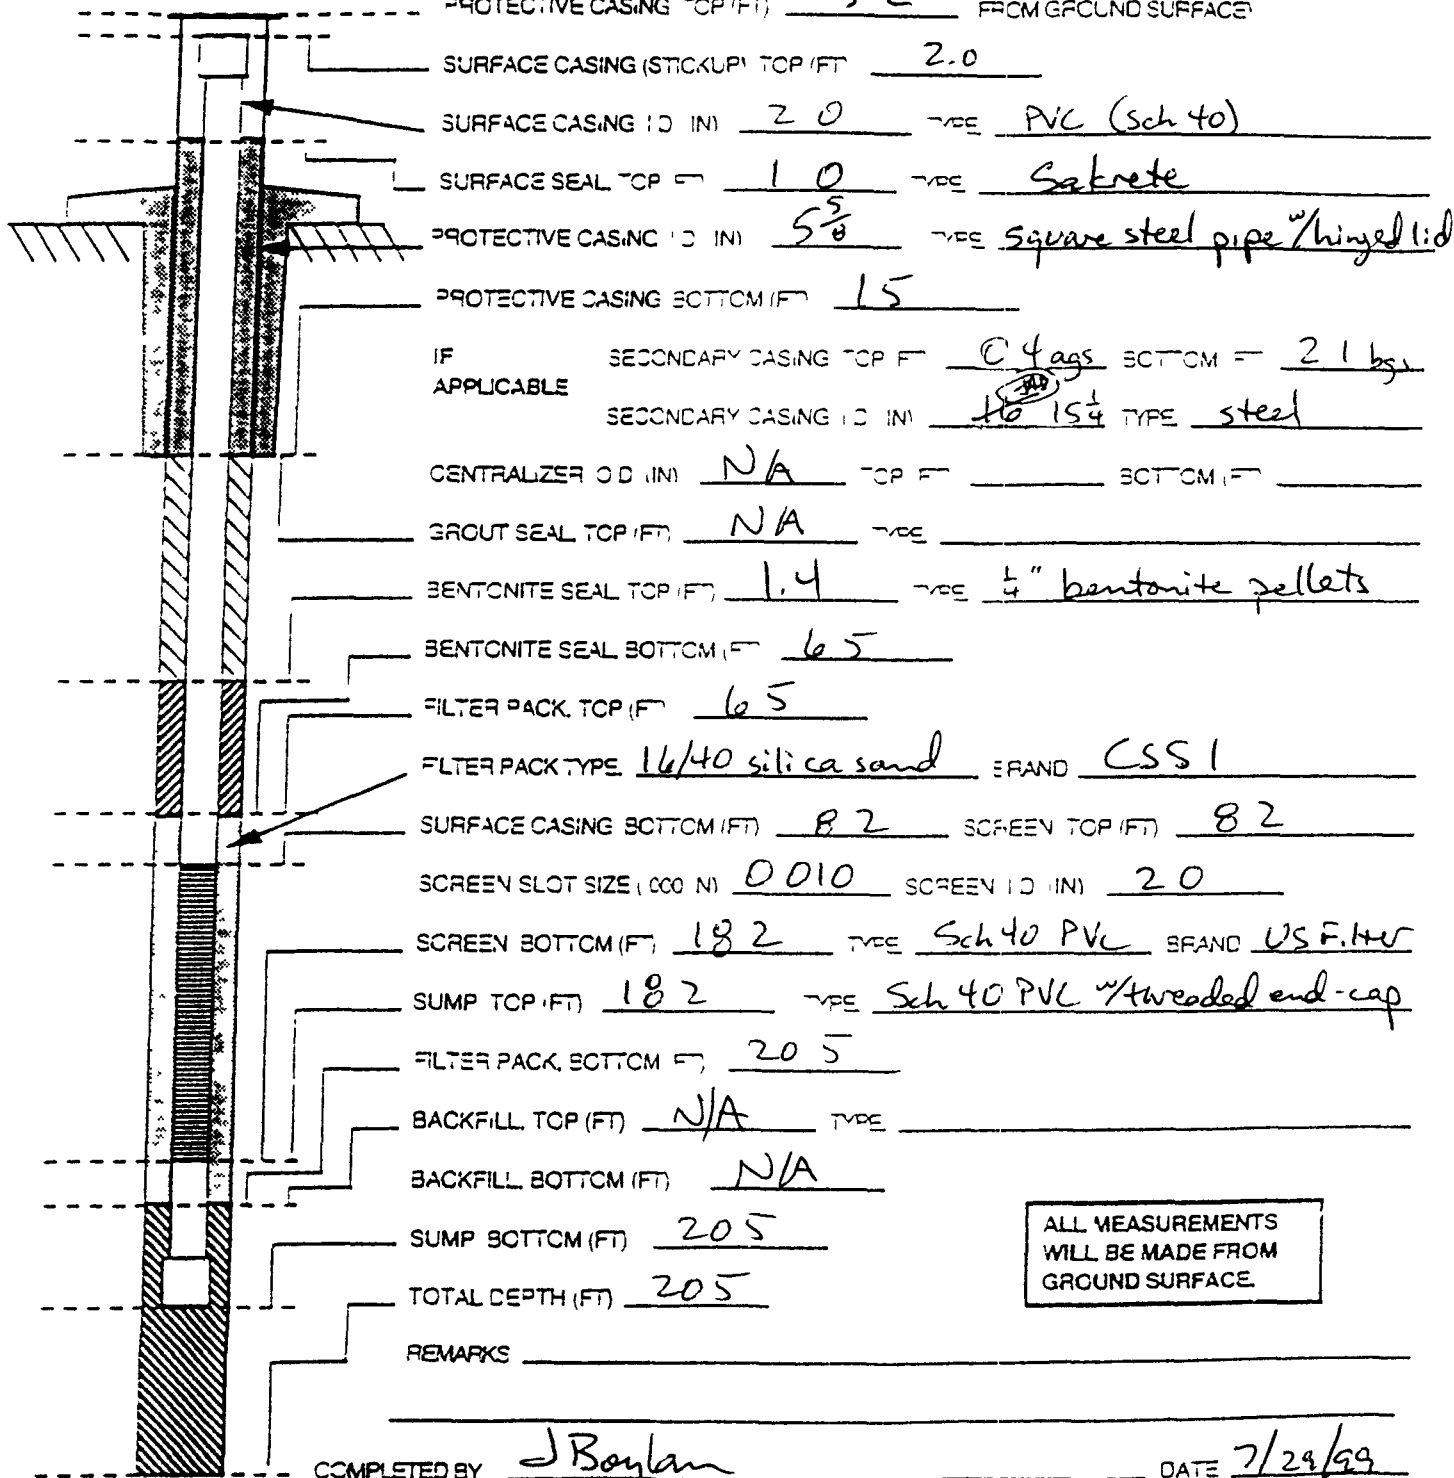 PROTECTIVE CASING TOP (FT) FROM GROUND SURFACE)
SURFACE CASING (STICKUP) TOP (FT 2.0
SURFACE CASING I D IN) 2 0 TYPE PVC (Sch 40)
SURFACE SEAL TOP FT 1 0 TYPE Sakrete
PROTECTIVE CASING I D IN) 5 5/8 TYPE square steel pipe w/hinged lid
PROTECTIVE CASING BOTTOM (FT) 1 5
IF APPLICABLE SECONDARY CASING TOP FT 0 4 ags BOTTOM FT 2 1 bgs
SECONDARY CASING I D IN) 16 15 1/4 TYPE steel
CENTRALIZER O D (IN) N/A TOP FT BOTTOM (FT)
GROUT SEAL TOP (FT) N/A TYPE
BENTONITE SEAL TOP (FT) 1.4 TYPE 1/4" bentonite pellets
BENTONITE SEAL BOTTOM (FT 6 5
FILTER PACK, TOP (FT) 6 5
FILTER PACK TYPE 16/40 silica sand BRAND CSSI
SURFACE CASING BOTTOM (FT) 8 2 SCREEN TOP (FT) 8 2
SCREEN SLOT SIZE (.000 IN) 0 010 SCREEN I D (IN) 2 0
SCREEN BOTTOM (FT) 18 2 TYPE Sch 40 PVC BRAND US Filter
SUMP TOP (FT) 18 2 TYPE Sch 40 PVC w/threaded end-cap
FILTER PACK, BOTTOM FT) 20 5
BACKFILL, TOP (FT) N/A TYPE
BACKFILL, BOTTOM (FT) N/A
SUMP BOTTOM (FT) 20 5
ALL MEASUREMENTS
WILL BE MADE FROM
GROUND SURFACE.
TOTAL DEPTH (FT) 20 5
REMARKS
COMPLETED BY J Boylan DATE 7/29/99